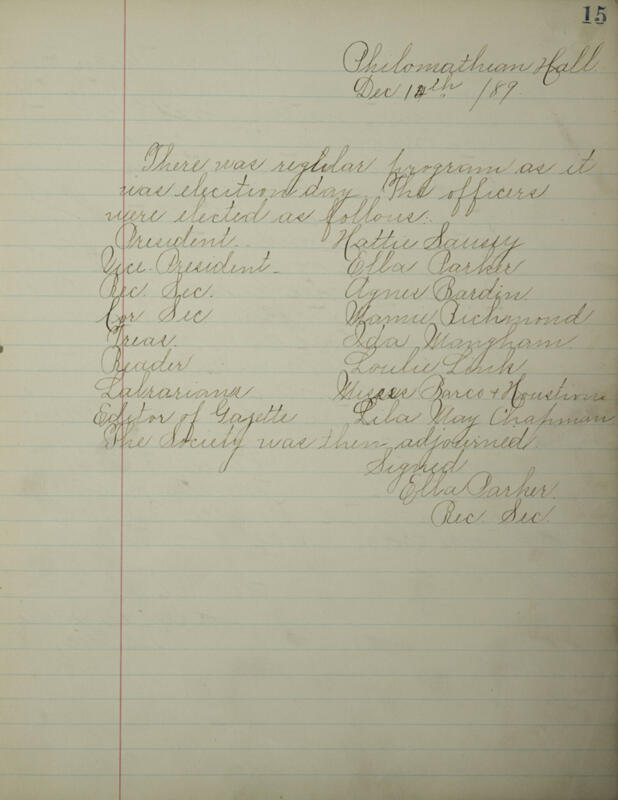 15
Philomathian Hall.
Dec 14th /89.
There was reglular program as it
was election day. The officers
were elected as follows.
President. Hattie Saussy
Vice-President Ella Parker
Rec. Sec. Agnes Bardin
Cor Sec Mamie Richmond
Treas. Ida Mangham.
Reader Loulie Link
Labrarians Misses Barco + Houstion
Editor of Gazette Lila May Chapman
The Society was then adjourned
Signed
Ella Parker.
Rec. Sec.